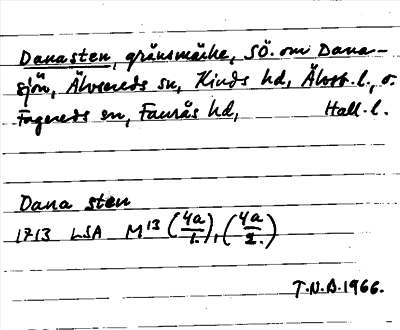 Danasten, gränsmärke, SÖ. om Dana-
sjön, Älvsereds sn, Kinds hd, Älvsb. l., o.
Fagereds sn, Faurås hd, Hall. l.
Dana sten
1713 LSA M13 (4a/1.), (4a/2.)
T.N.B. 1966.